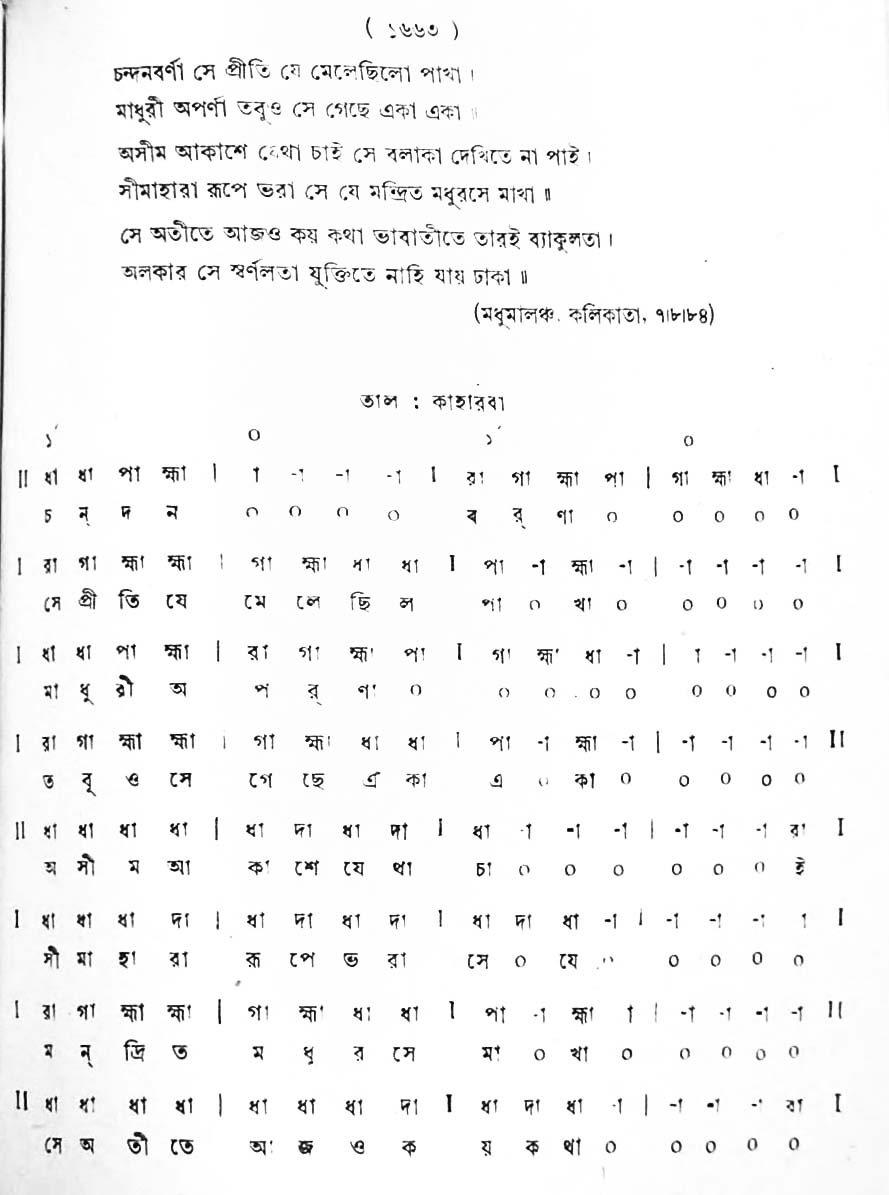 ( ১৬৬৩ )
চন্দনবর্ণা সে প্রীতি যে মেলেছিলো পাখা ।
মাধুরী অপর্ণা তবুও সে গেছে একা একা ॥
অসীম আকাশে যেথা চাই সে বলাকা দেখিতে না পাই ।
সীমাহারা রূপে ভরা সে যে মন্দ্রিত মধুরসে মাখা ॥
সে অতীতে আজও কয় কথা ভাবাতীতে তারই ব্যাকুলতা ।
অলকার সে স্বর্ণলতা যুক্তিতে নাহি যায় ঢাকা ॥
(মধুমালঞ্চ, কলিকাতা, ৭।৮।৮৪)
তাল : কাহারবা
১´ ০ ১´ ০
II ধা ধা পা হ্মা | া -া -া -া I রা গা হ্মা পা | গা হ্মা ধা -া I
চ ন্ দ ন ০ ০ ০ ০ ব র্ ণা ০ ০ ০ ০ ০
I রা গা হ্মা হ্মা | গা হ্মা ধা ধা I পা -া হ্মা -া | -া -া -া -া I
সে প্রী তি যে মে লে ছি ল পা ০ খা ০ ০ ০ ০ ০
I ধা ধা পা হ্মা | রা গা হ্মা পা I গা হ্মা ধা -া | া -া -া -া I
মা ধু রী অ প র্ ণা ০ ০ ০ ০ ০ ০ ০ ০ ০
I রা গা হ্মা হ্মা | গা হ্মা ধা ধা I পা -া হ্মা -া | -া -া -া -া II
ত বু ও সে গে ছে এ কা এ ০ কা ০ ০ ০ ০ ০
II ধা ধা ধা ধা | ধা দা ধা দা I ধা -া -া -া | -া -া -া রা I
অ সী ম আ কা শে যে থা চা ০ ০ ০ ০ ০ ০ ই
I ধা ধা ধা দা | ধা দা ধা দা I ধা দা ধা -া | -া -া -া া I
সী মা হা রা রূ পে ভ রা সে ০ যে ০ ০ ০ ০ ০
I রা গা হ্মা হ্মা | গা হ্মা ধা ধা I পা -া হ্মা া | -া -া -া -া II
ম ন্ দ্রি ত ম ধু র সে মা ০ খা ০ ০ ০ ০ ০
II ধা ধা ধা ধা | ধা ধা ধা দা I ধা দা ধা -া | -া -া -া রা I
সে অ তী তে আ জ ও ক য় ক থা ০ ০ ০ ০ ০